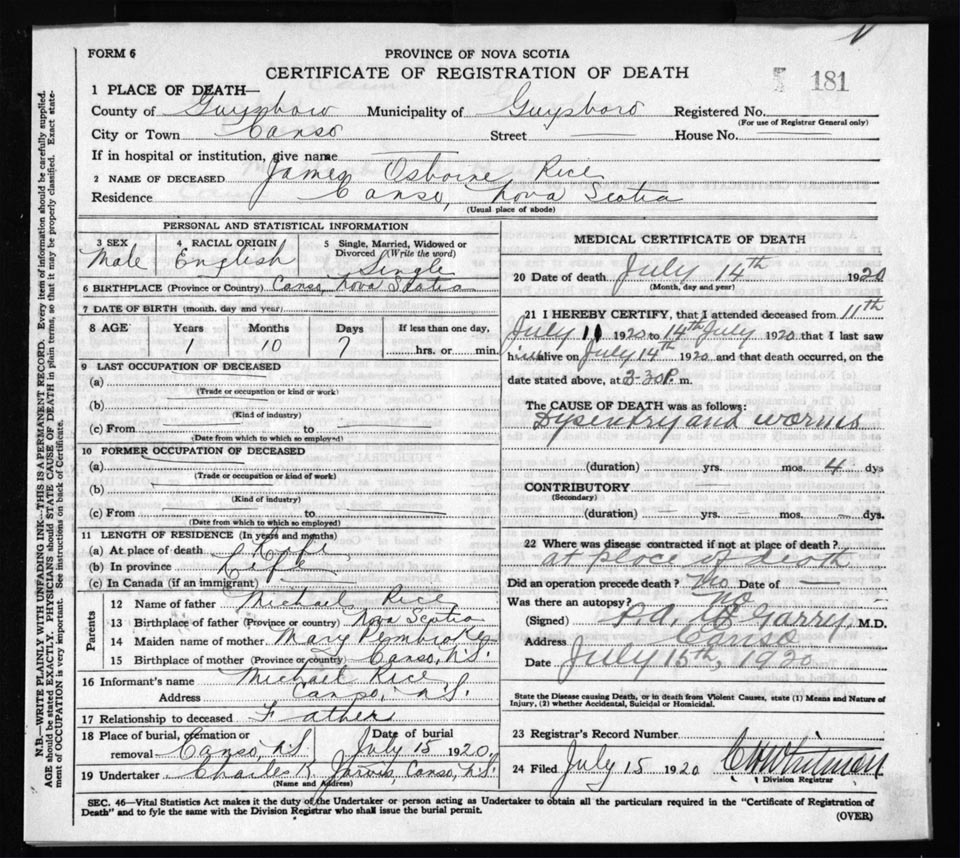 FORM 6
PROVINCE OF NOVA SCOTIA
CERTIFICATE OF REGISTRATION OF DEATH
181
1 PLACE OF DEATH—
County of Guysboro Municipality of Guysboro Registered No.
(For use of Registrar General only)
City or Town Canso Street House No.
If in hospital or institution, give name
2 NAME OF DECEASED James Osborne Rice
Residence Canso, Nova Scotia
(Usual place of abode)
PERSONAL AND STATISTICAL INFORMATION
3 SEX Male
4 RACIAL ORIGIN English
5 Single, Married, Widowed or Divorced (Write the word) Single
6 BIRTHPLACE (Province or Country) Canso, Nova Scotia
7 DATE OF BIRTH (month, day and year)
8 AGE Years Months Days If less than one day,
1 10 7 hrs. or min.
9 LAST OCCUPATION OF DECEASED
(a)
(Trade or occupation or kind or work)
(b)
(Kind of industry)
(c) From to
(Date from which to which so employed)
10 FORMER OCCUPATION OF DECEASED
(a)
(Trade or occupation or kind of work)
(b)
(Kind of industry)
(c) From to
(Date from which to which so employed)
11 LENGTH OF RESIDENCE (In years and months)
(a) At place of death Life
(b) In province Life
(c) In Canada (if an immigrant)
Parents
12 Name of father Michael Rice
13 Birthplace of father (Province or country) Nova Scotia
14 Maiden name of mother Mary Pembroke
15 Birthplace of mother (Province or country) Canso, N.S.
16 Informant's name Michael Rice
Address Canso, N.S.
17 Relationship to deceased Father
18 Place of burial, cremation or removal Canso, N.S. Date of burial July 15 1920
19 Undertaker Charles K Jarvis Canso, N.S.
(Name and Address)
MEDICAL CERTIFICATE OF DEATH
20 Date of death July 14th 1920
(Month, day and year)
21 I HEREBY CERTIFY, that I attended deceased from 11th
July 11 1920 to 14th July 1920 that I last saw
him alive on July 14th 1920 and that death occurred, on the
date stated above, at 3-30 P. m.
The CAUSE OF DEATH was as follows:
Dysentry and worms
(duration) yrs. mos. 4 dys
CONTRIBUTORY
(Secondary)
(duration) yrs. mos. dys.
22 Where was disease contracted if not at place of death?
at place of death
Did an operation precede death? No Date of
Was there an autopsy? No
(Signed) McGarry, M.D.
Address Canso
Date July 15th, 1920
State the Disease causing Death, or in death from Violent Causes, state (1) Means and Nature of
Injury, (2) whether Accidental, Suicidal or Homicidal.
23 Registrar's Record Number
24 Filed July 15 1920 Whitman
Division Registrar
SEC. 46—Vital Statistics Act makes it the duty of the Undertaker or person acting as Undertaker to obtain all the particulars required in the "Certificate of Registration of
Death" and to fyle the same with the Division Registrar who shall issue the burial permit.
(OVER)
N.B.—WRITE PLAINLY WITH UNFADING INK—THIS IS A PERMANENT RECORD. Every item of information should be carefully supplied.
AGE should be stated EXACTLY. PHYSICIANS should STATE CAUSE OF DEATH in plain terms, so that it may be properly classified. Exact state-
ment of OCCUPATION is very important. See instructions on back of Certificate.